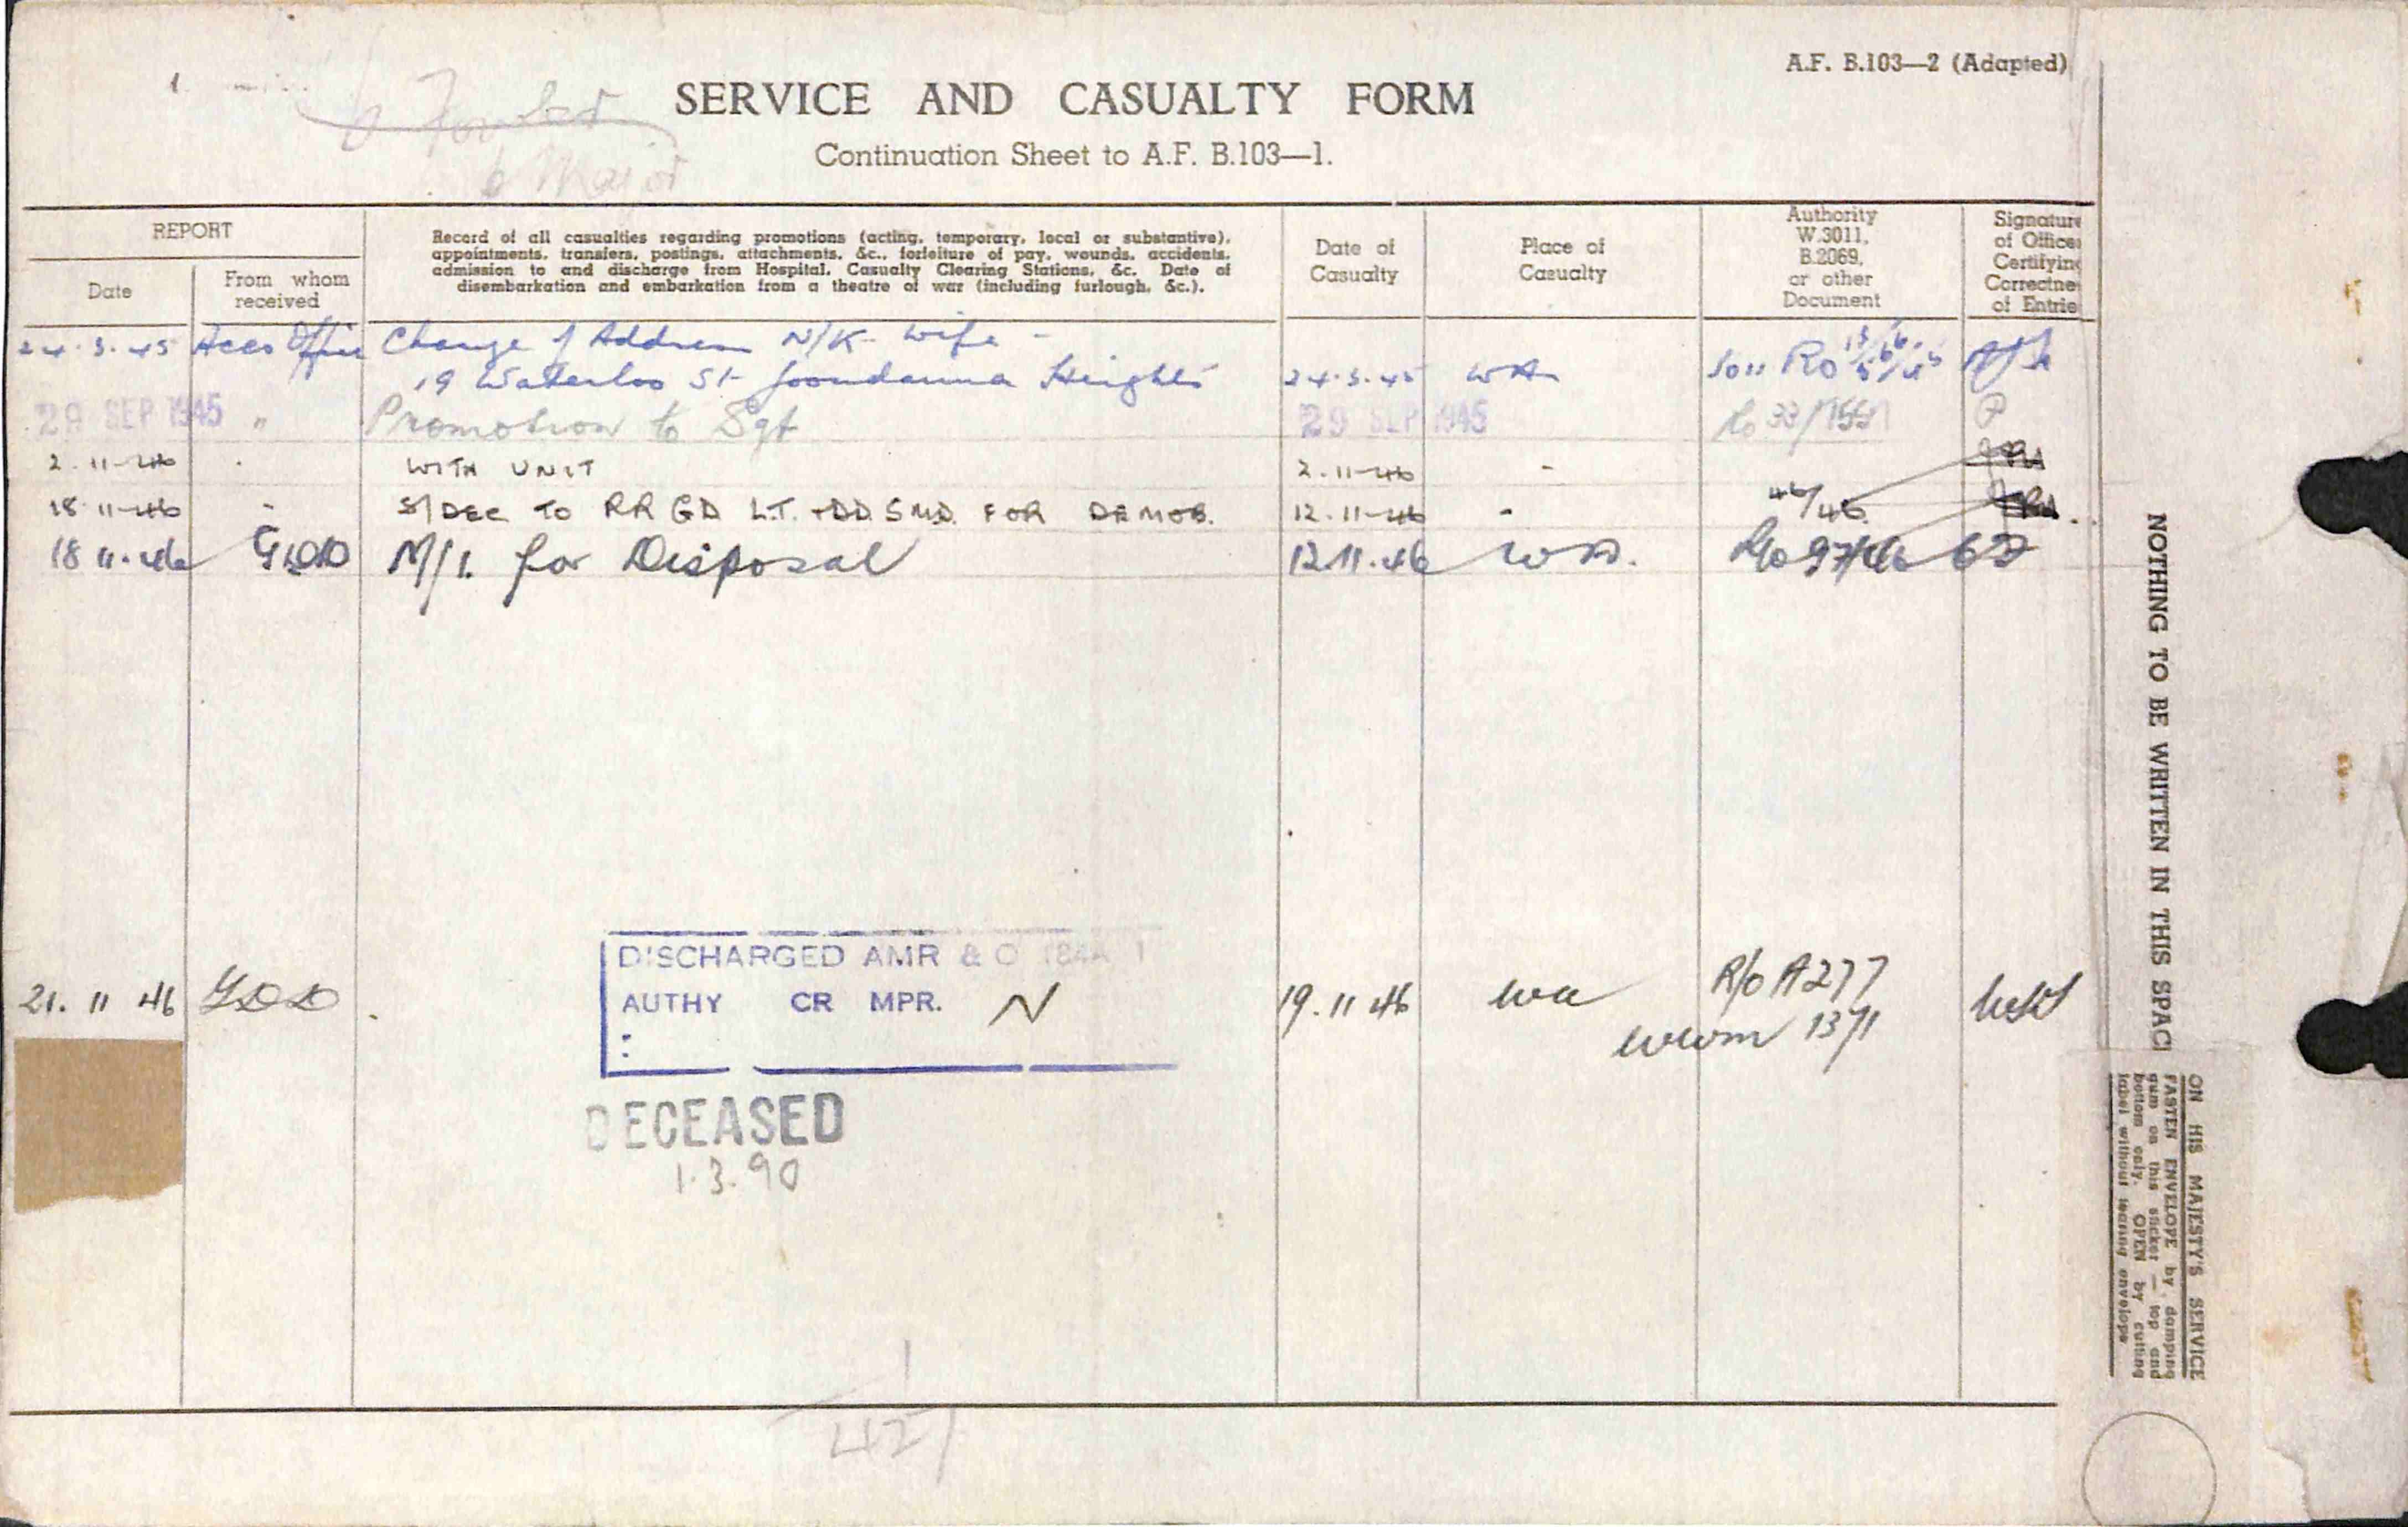 A.F. B.103—2 (Adapted)
SERVICE AND CASUALTY FORM
Continuation Sheet to A.F. B.103—1.
Major
REPORT
Date
From whom
received
Record of all casualties regarding promotions (acting, temporary, local or substantive),
appointments, transfers, postings, attachments, &c., forfeiture of pay, wounds, accidents,
admission to and discharge from Hospital, Casualty Clearing Stations, &c. Date of
disembarkation and embarkation from a theatre of war (including furlough, &c.).
Date of
Casualty
Place of
Casualty
Authority
W.3011,
B.2069,
or other
Document
Signature
of Officer
Certifying
Correctne
of Entrie
24.3.45 Office Change of Address N/K - wife -
19 Waterloo St Joondanna Heights 24.3.45 WA Ro
29 SEP 1945 " Promotion to Sgt 29 SEP 1945 Ro 33/
2.11-46 WITH UNIT 2.11-46 -
18 11-46 - TO RR GD L.T. FOR DEMOB. 12.11-46 - 46/46
18 11.46 GDD M/I. for Disposal 12.11.46 W.A. R/o 97/46
21. 11 46 GDD
DISCHARGED AMR & O 184A 1
AUTHY CR MPR. N
:
19.11 46 wa R/o A277
wwm 13/1
DECEASED
1.3.90
1
427
NOTHING TO BE WRITTEN IN THIS SPAC
ON HIS MAJESTY'S SERVICE
FASTEN ENVELOPE by damping
gum on this sticker — top and
bottom only. OPEN by cutting
label without tearing envelope